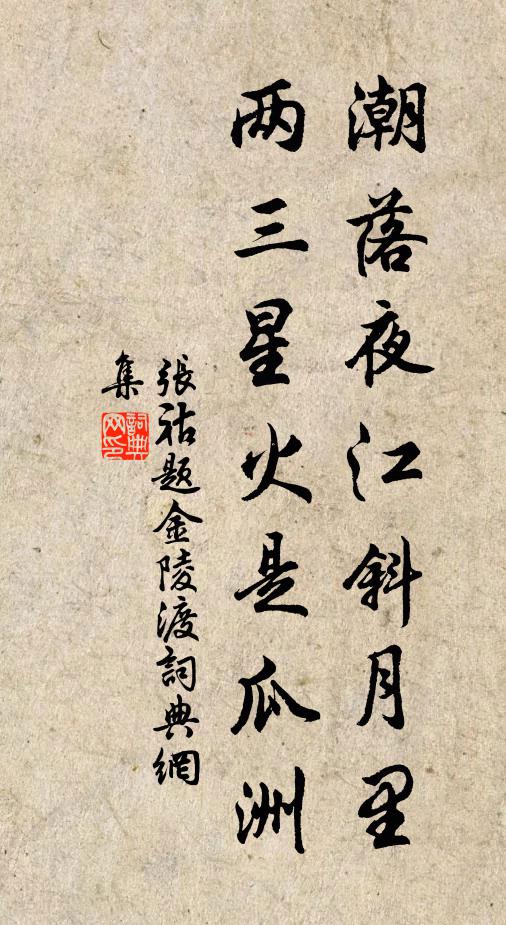 潮落夜江斜月里
两三星火是瓜洲
張祜題金陵渡詞典網
集
詞典
网印